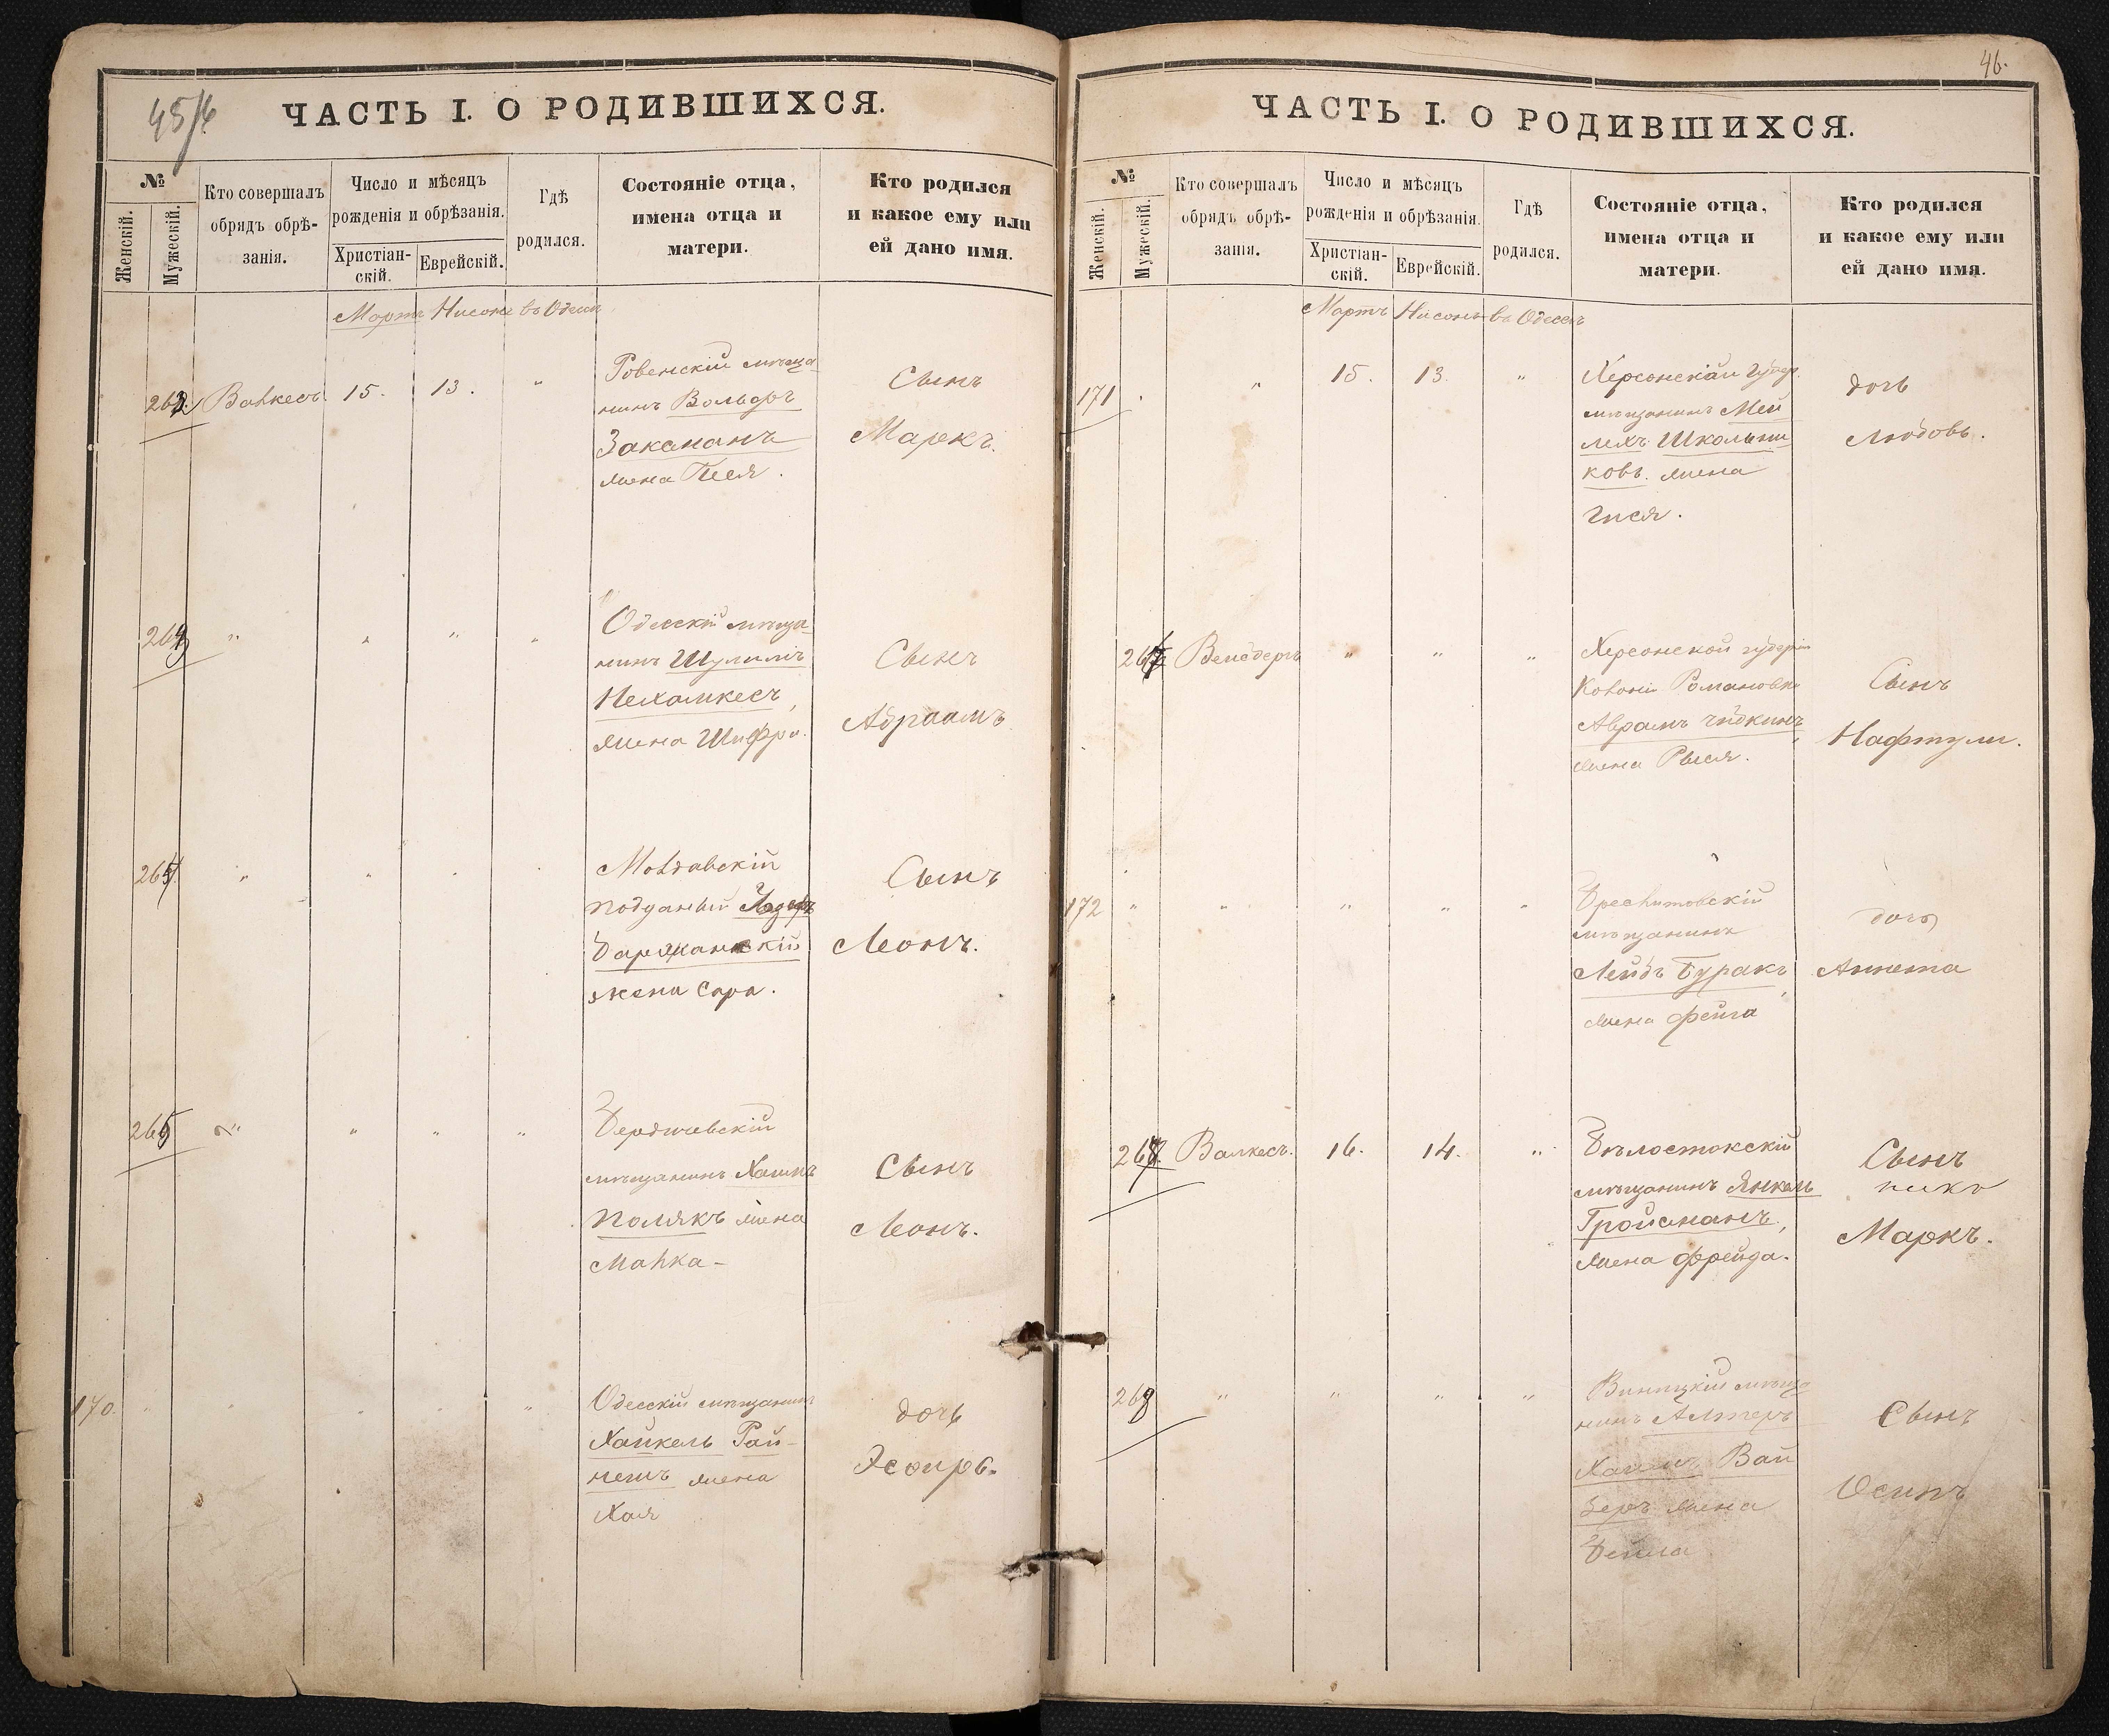 45/6
ЧАСТЬ I. О РОДИВШИХСЯ.
№
Женскій.
Мужескій.
Кто совершалъ
обрядъ обрѣ-
занія.
Число и мѣсяцъ
рожденія и обрѣзанія.
Христіан-
скій.
Еврейскій.
Гдѣ
родился.
Состояніе отца,
имена отца и
матери.
Кто родился
и какое ему или
ей дано имя.
Мартъ Нисонъ въ Одессѣ
Ровенскій мѣща
263 Валкесъ 15. 13. " нинъ Вольфъ Сынъ
Закаманъ Маркъ.
жена Песя.
Одесскій мѣща-
264 " " " " нинъ Шулимъ Сынъ
Нехамкесъ, Абраамъ
жена Шифра.
Молдавскій Сынъ
265 " " " подданый
скій Леонъ.
жена Сара.
Бердичевскій
266 " " " "
мѣщанинъ Хаимъ Сынъ
Полякъ жена Леонъ.
Малка -
170. " " " " " Одесскій мѣщанинъ дочь
Хайкель Рай-
нешъ жена Эсѳирь.
Хая
46.
ЧАСТЬ I. О РОДИВШИХСЯ.
№
Женскій.
Мужескій.
Кто совершалъ
обрядъ обрѣ-
занія.
Число и мѣсяцъ
рожденія и обрѣзанія.
Христіан-
скій.
Еврейскій.
Гдѣ
родился.
Состояніе отца,
имена отца и
матери.
Кто родился
и какое ему или
ей дано имя.
Мартъ Нисонъ въ Одессѣ
171 " 15. 13. " Херсонскай губер. дочь
мѣщанинъ Мей
лехъ Школьни- Любовь.
ковъ. жена
Гися.
Херсонской губерніи
Вейсберъ " " "
Колоніи Романовки Сынъ
Аврамъ Чудкинъ, Нафтули.
жена Рыся.
172 " " " " " Бреслитовскій дочь
мѣщанинъ
Лейбъ Буракъ, Аннета
жена фейга
267. Валкесъ. 16. 14. " Бѣлостокскій Сынъ
мѣщанинъ Янкель
Гройсманъ, Маркъ.
жена фрейда.
268 " " " " Винницкій мѣща
нинъ Алтеръ Сынъ
Хаимъ Вай
беръ жена Осипъ
Бейла